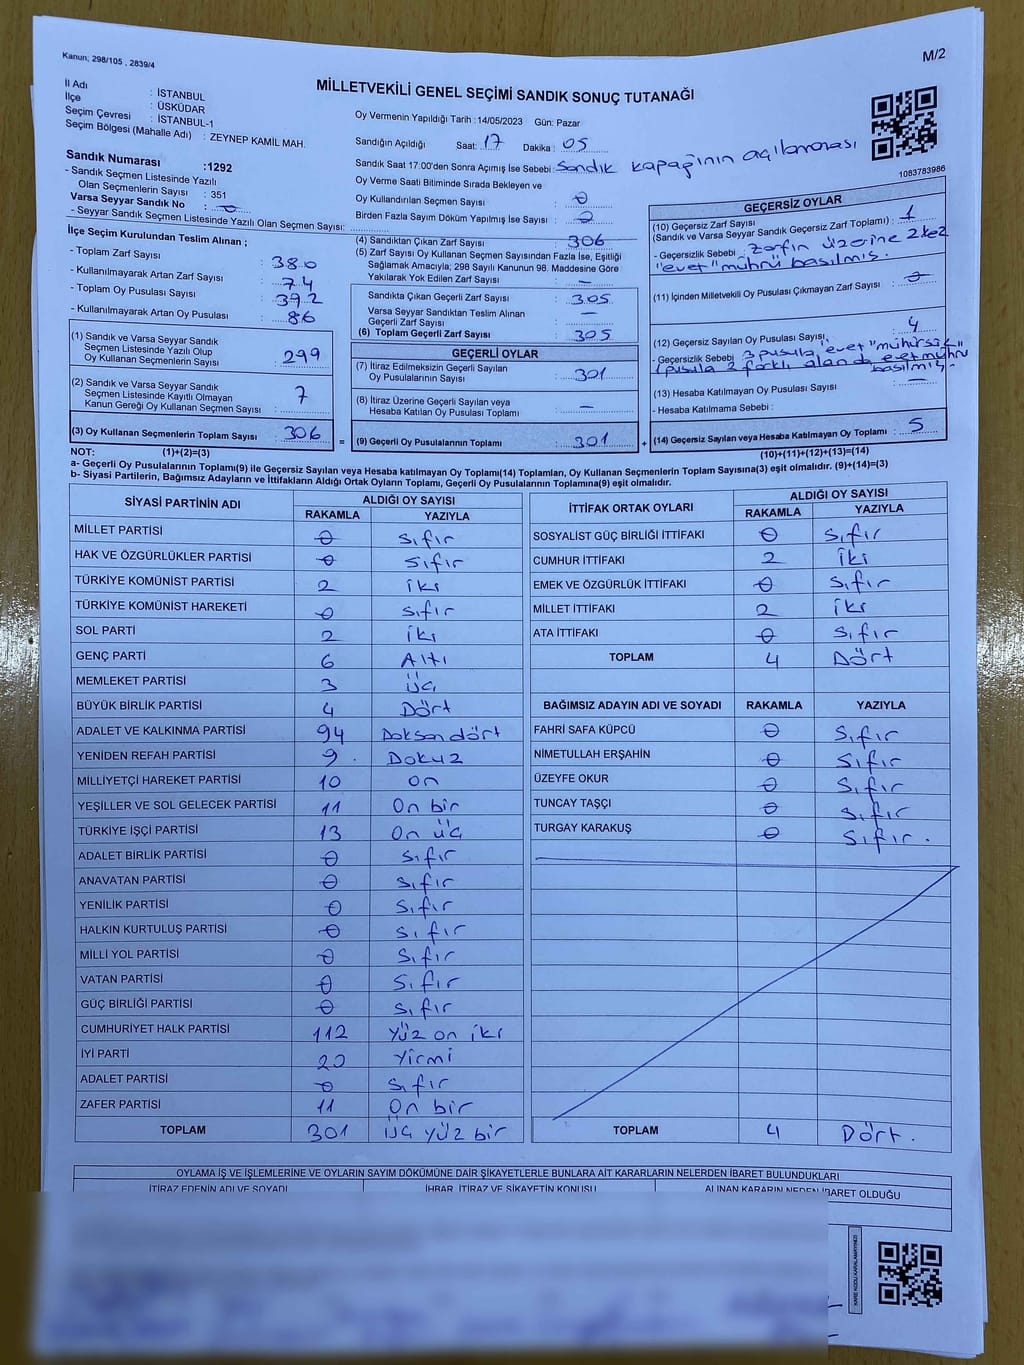 Kanun; 298/105 , 2839/4
M/2
MİLLETVEKİLİ GENEL SEÇİMİ SANDIK SONUÇ TUTANAĞI
İl Adı : İSTANBUL
İlçe : ÜSKÜDAR
Seçim Çevresi : İSTANBUL-1
Seçim Bölgesi (Mahalle Adı) : ZEYNEP KAMİL MAH.
Sandık Numarası :1292
- Sandık Seçmen Listesinde Yazılı
Olan Seçmenlerin Sayısı : 351
Varsa Seyyar Sandık No : 0
- Seyyar Sandık Seçmen Listesinde Yazılı Olan Seçmen Sayısı:
Oy Vermenin Yapıldığı Tarih : 14/05/2023 Gün: Pazar
Sandığın Açıldığı Saat: 17 Dakika : 05
Sandık Saat 17:00'den Sonra Açımış İse Sebebi : Sandık kapağının açılamaması
Oy Verme Saati Bitiminde Sırada Bekleyen ve
Oy Kullandırılan Seçmen Sayısı : 0
Birden Fazla Sayım Döküm Yapılmış İse Sayısı : 0
1083783986
İlçe Seçim Kurulundan Teslim Alınan ;
- Toplam Zarf Sayısı : 380
- Kullanılmayarak Artan Zarf Sayısı : 74
- Toplam Oy Pusulası Sayısı : 392
- Kullanılmayarak Artan Oy Pusulası : 86
(1) Sandık ve Varsa Seyyar Sandık
Seçmen Listesinde Yazılı Olup
Oy Kullanan Seçmenlerin Sayısı : 299
(2) Sandık ve Varsa Seyyar Sandık
Seçmen Listesinde Kayıtlı Olmayan
Kanun Gereği Oy Kullanan Seçmen Sayısı : 7
(3) Oy Kullanan Seçmenlerin Toplam Sayısı : 306
(1)+(2)=(3)
(4) Sandıktan Çıkan Zarf Sayısı : 306
(5) Zarf Sayısı Oy Kullanan Seçmen Sayısından Fazla İse, Eşitliği
Sağlamak Amacıyla; 298 Sayılı Kanunun 98. Maddesine Göre
Yakılarak Yok Edilen Zarf Sayısı : —
Sandıkta Çıkan Geçerli Zarf Sayısı : 305
Varsa Seyyar Sandıktan Teslim Alınan
Geçerli Zarf Sayısı : —
(6) Toplam Geçerli Zarf Sayısı : 305
GEÇERLİ OYLAR
(7) İtiraz Edilmeksizin Geçerli Sayılan
Oy Pusulalarının Sayısı : 301
(8) İtiraz Üzerine Geçerli Sayılan veya
Hesaba Katılan Oy Pusulası Toplamı : —
= (9) Geçerli Oy Pusulalarının Toplamı : 301
GEÇERSİZ OYLAR
(10) Geçersiz Zarf Sayısı
(Sandık ve Varsa Seyyar Sandık Geçersiz Zarf Toplamı) : 1
- Geçersizlik Sebebi : Zarfın üzerine 2 kez
"evet" mührü basılmış.
(11) İçinden Milletvekili Oy Pusulası Çıkmayan Zarf Sayısı : 0
(12) Geçersiz Sayılan Oy Pusulası Sayısı : 4
- Geçersizlik Sebebi : 3 pusula "evet" mühürsüz"
1 pusula 2 farklı alanda evet mührü
basılmış.
(13) Hesaba Katılmayan Oy Pusulası Sayısı : —
- Hesaba Katılmama Sebebi :
+ (14) Geçersiz Sayılan veya Hesaba Katılmayan Oy Toplamı : 5
(10)+(11)+(12)+(13)=(14)
NOT:
a- Geçerli Oy Pusulalarının Toplamı(9) ile Geçersiz Sayılan veya Hesaba katılmayan Oy Toplamı(14) Toplamları, Oy Kullanan Seçmenlerin Toplam Sayısına(3) eşit olmalıdır. (9)+(14)=(3)
b- Siyasi Partilerin, Bağımsız Adayların ve İttifakların Aldığı Ortak Oyların Toplamı, Geçerli Oy Pusulalarının Toplamına(9) eşit olmalıdır.
SİYASİ PARTİNİN ADI ALDIĞI OY SAYISI
RAKAMLA YAZIYLA
MİLLET PARTİSİ 0 Sıfır
HAK VE ÖZGÜRLÜKLER PARTİSİ 0 Sıfır
TÜRKİYE KOMÜNİST PARTİSİ 2 İki
TÜRKİYE KOMÜNİST HAREKETİ 0 Sıfır
SOL PARTİ 2 İki
GENÇ PARTİ 6 Altı
MEMLEKET PARTİSİ 3 Üç
BÜYÜK BİRLİK PARTİSİ 4 Dört
ADALET VE KALKINMA PARTİSİ 94 Doksandört
YENİDEN REFAH PARTİSİ 9 Dokuz
MİLLİYETÇİ HAREKET PARTİSİ 10 On
YEŞİLLER VE SOL GELECEK PARTİSİ 11 On bir
TÜRKİYE İŞÇİ PARTİSİ 13 On üç
ADALET BİRLİK PARTİSİ 0 Sıfır
ANAVATAN PARTİSİ 0 Sıfır
YENİLİK PARTİSİ 0 Sıfır
HALKIN KURTULUŞ PARTİSİ 0 Sıfır
MİLLİ YOL PARTİSİ 0 Sıfır
VATAN PARTİSİ 0 Sıfır
GÜÇ BİRLİĞİ PARTİSİ 0 Sıfır
CUMHURİYET HALK PARTİSİ 112 Yüz on iki
İYİ PARTİ 20 Yirmi
ADALET PARTİSİ 0 Sıfır
ZAFER PARTİSİ 11 On bir
TOPLAM 301 Üç yüz bir
İTTİFAK ORTAK OYLARI ALDIĞI OY SAYISI
RAKAMLA YAZIYLA
SOSYALİST GÜÇ BİRLİĞİ İTTİFAKI 0 Sıfır
CUMHUR İTTİFAKI 2 İki
EMEK VE ÖZGÜRLÜK İTTİFAKI 0 Sıfır
MİLLET İTTİFAKI 2 İki
ATA İTTİFAKI 0 Sıfır
TOPLAM 4 Dört
BAĞIMSIZ ADAYIN ADI VE SOYADI RAKAMLA YAZIYLA
FAHRİ SAFA KÜPCÜ 0 Sıfır
NİMETULLAH ERŞAHİN 0 Sıfır
ÜZEYFE OKUR 0 Sıfır
TUNCAY TAŞÇI 0 Sıfır
TURGAY KARAKUŞ 0 Sıfır.
TOPLAM 4 Dört.
OYLAMA İŞ VE İŞLEMLERİNE VE OYLARIN SAYIM DÖKÜMÜNE DAİR ŞİKAYETLERLE BUNLARA AİT KARARLARIN NELERDEN İBARET BULUNDUKLARI
İTİRAZ EDENİN ADI VE SOYADI İHBAR, İTİRAZ VE ŞİKAYETİN KONUSU ALINAN KARARIN NEDEN İBARET OLDUĞU
KARE KODU KARALAMAYINIZ!